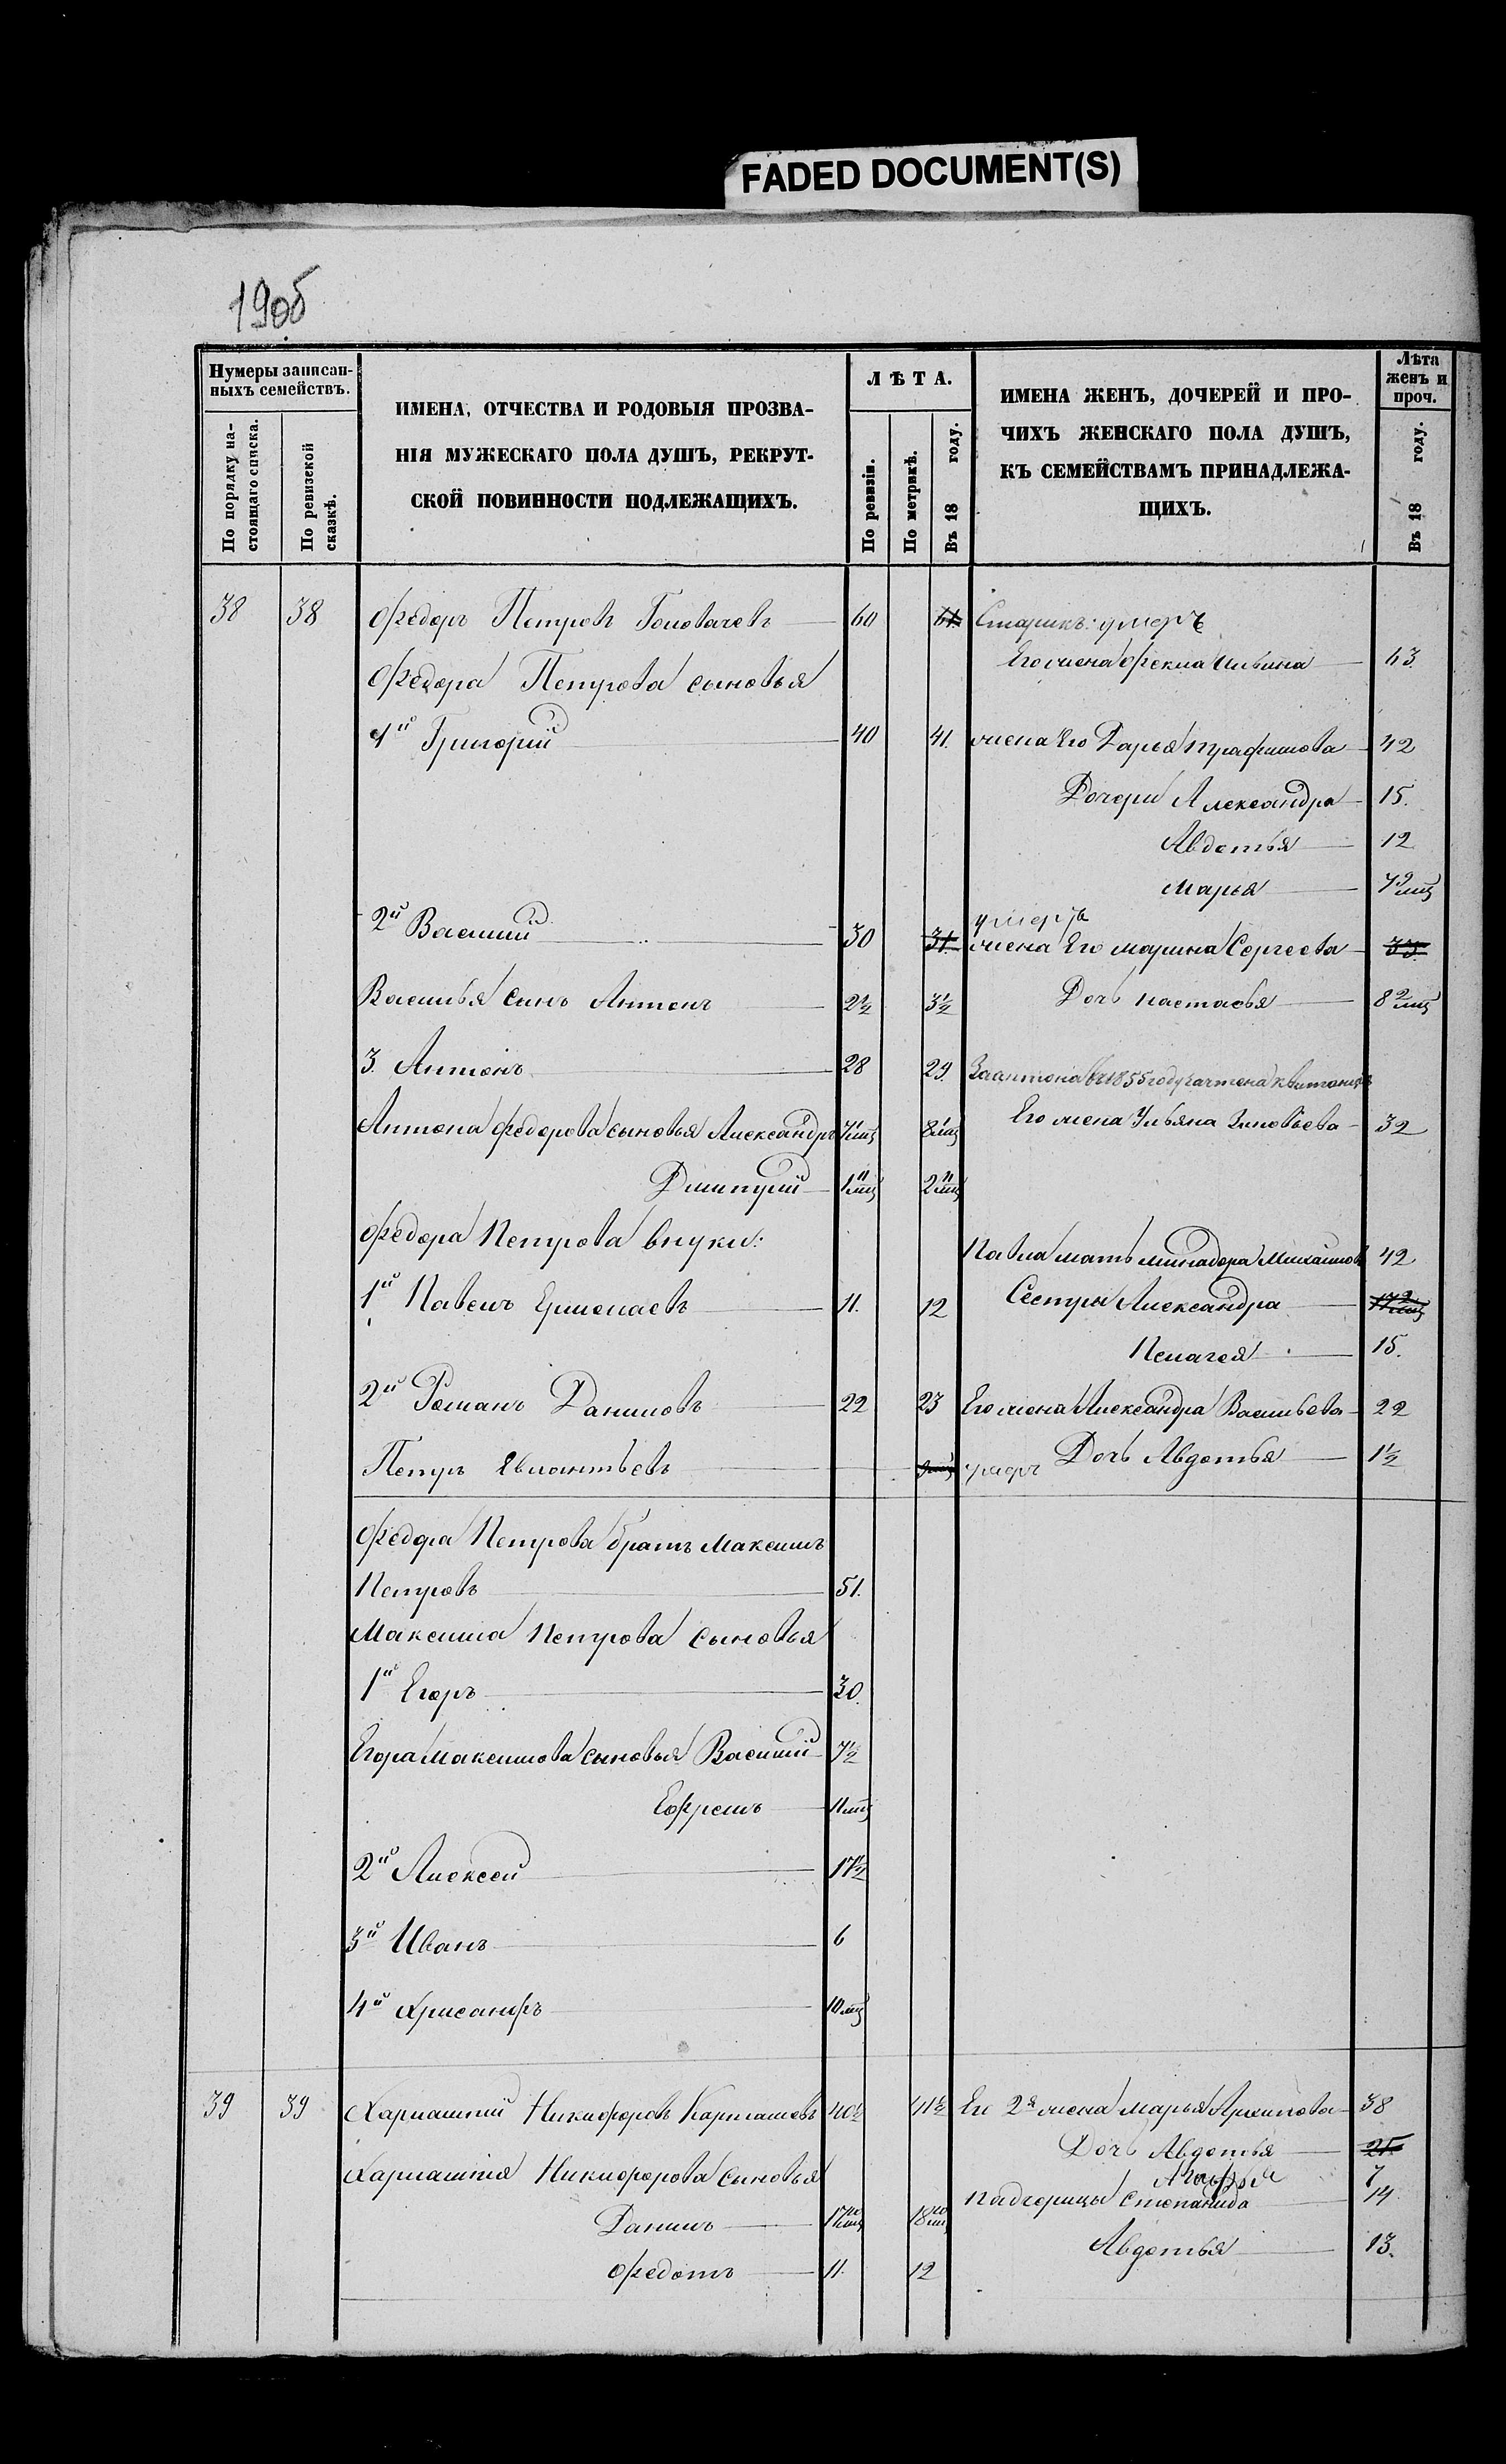 FADED DOCUMENT(S)
1905
Нумеры записан-
ныхъ семействъ.
По порядку на-
стоящаго списка.
По ревизской
сказкѣ.
ИМЕНА, ОТЧЕСТВА И РОДОВЫЯ ПРОЗВА-
НІЯ МУЖЕСКАГО ПОЛА ДУШЪ, РЕКРУТ-
СКОЙ ПОВИННОСТИ ПОДЛЕЖАЩИХЪ.
ЛѢТА.
По ревизіи.
По метрикѣ.
Въ 18 году.
ИМЕНА ЖЕНЪ, ДОЧЕРЕЙ И ПРО-
ЧИХЪ ЖЕНСКАГО ПОЛА ДУШЪ,
КЪ СЕМЕЙСТВАМЪ ПРИНАДЛЕЖА-
ЩИХЪ.
Лѣта
женъ и
проч.
Въ 18 году.
38 38 Федоръ Петровъ Головачевъ 60 61. Старикъ умеръ
Его жена Фекла Ильина 43
Федора Петрова сыновья
1й Григорій 40 41. жена Его Дарья Трафимова 42
Дочери Александра 15.
Авдотья 12
Марья 7 2/мц
умерла
2й Василий 30 31. жена Его Марина Сергеева 33.
Василья сынъ Антонъ 2½ 3½ Дочь Настасья 8 2/мц
3. Антонъ 28 29. За антона въ 1855 году зачтена квитанція
Антона Федорова сыновья Александръ 7 1/мц 8 1/мц Его жена Ульяна Зиновьева 32
Дмитрій 1 11/мц 2 11/мц
Федора Петрова внуки:
Павла мать Минадора Михайлова 42
1й Павелъ Ермолаевъ 11. 12 Сестры Александра 17 2/мц
Пелагея 15.
2й Романъ Даниловъ 22 23 Его жена Александра Васильева 22
Петръ Евлантьевъ 9мц умеръ Дочь Авдотья 1½
Федора Петрова братъ Максимъ
Петровъ 51.
Максима Петрова сыновья
1й Егоръ 30.
Егора Максимова сыновья Василій 7½
Ефремъ 11мц
2й Алексей 17½
3й Иванъ 6
4й Хрисанфъ 10мц
39 39 Харлампий Никифоровъ Карташевъ 40½ 41½ Его 2я жена Марья Архипова 38
Дочь Авдотья 21.
Агафья 7
Харлампія Никифорова сыновья
Падчерицы Степанида 14
Данилъ 17 10/мц 18 10/мц
Авдотья 13.
Федотъ 11. 12